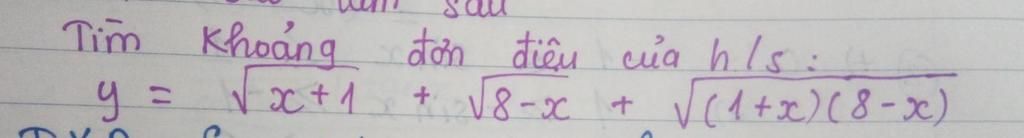 sau
Tìm khoảng đơn điệu của h/s:
y = √(x+1) + √(8-x) + √((1+x)(8-x))